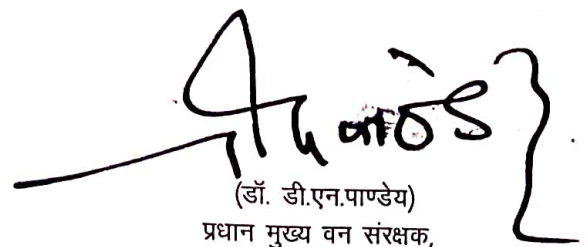 (डॉ. डी.एन.पाण्डेय)
प्रधान मुख्य वन संरक्षक,